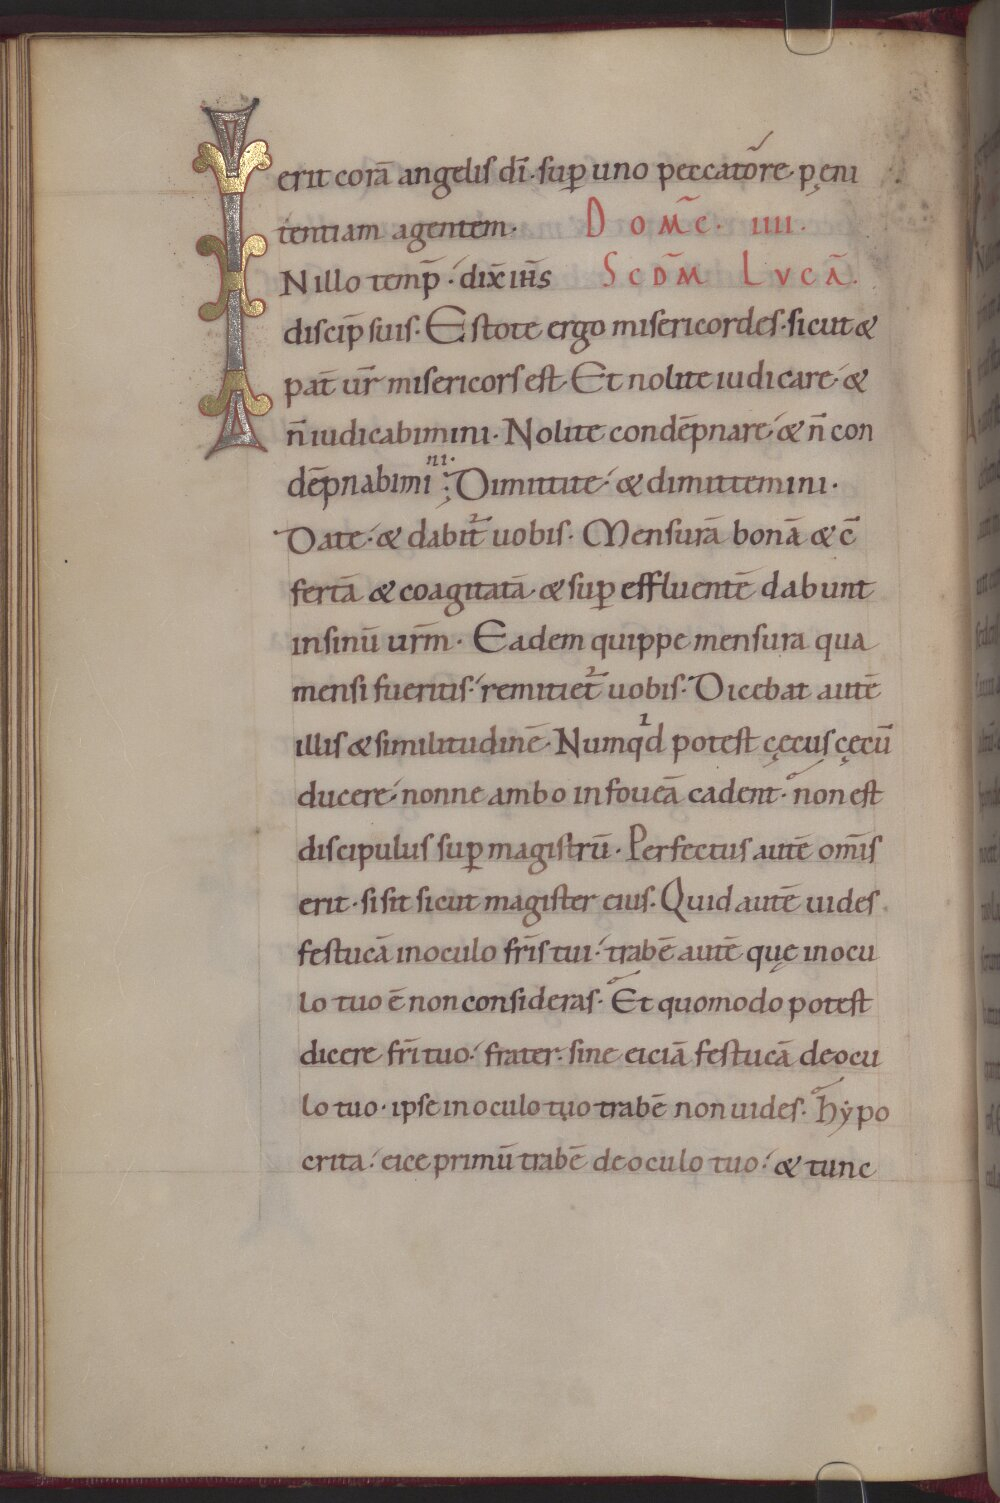 erit corā angelis dī· suꝑ uno peccatore· pęni
tentiam agentem· Dom̄c· IIII·
INillo temp̄· dix̄ ihs̄ Scdm̄ Lvcā·
discip̄ suis· Estote ergo misericordes· sicut &
pat̄ ur̄ misericors est· Et nolite iudicare· &
n̄ iudicabimini· Nolite condēpnare· & n̄ con
dēpnabimini· Dimittite· & dimittemini·
Date· & dabit̄ uobis· Mensurā bonā & c̄
fertā & coagitatā· & suꝑ effluentē dabunt
in sinū urm̄· Eadem quippe mensura qua
mensi fueritis· remitiet̄ uobis· Dicebat autē
illis & similitudinē· Numqd potest cęcus cęcū
ducere· nonne ambo in foueā cadent· non est
discipulus suꝑ magistrū· Perfectus autē om̄is
erit· si sit sicut magister eius· Quid autē uides
festucā in oculo fr̄is tui· trabē autē quę in ocu
lo tuo ē non consideras· Et quomodo potest
dicere fr̄i tuo· frater· sine eiciā festucā de ocu
lo tuo· ipse in oculo tuo trabē non uides· hẏpo
crita· eice primū trabē de oculo tuo· & tunc